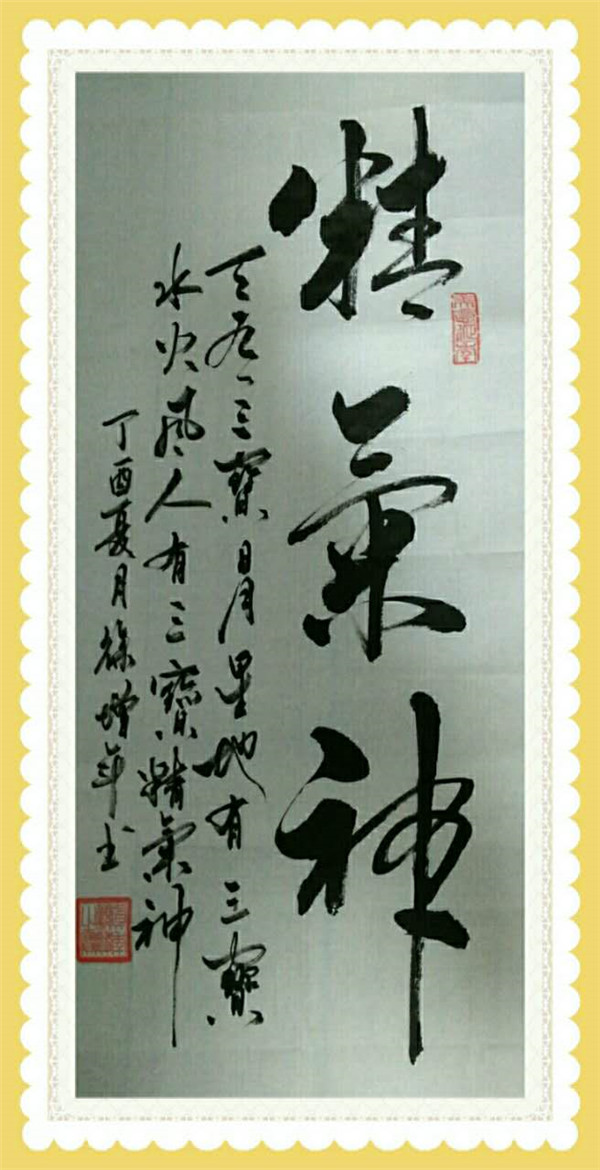 精氣神
天有三寶日月星地有三寶
水火風人有三寶精氣神
丁酉夏月徐增年书